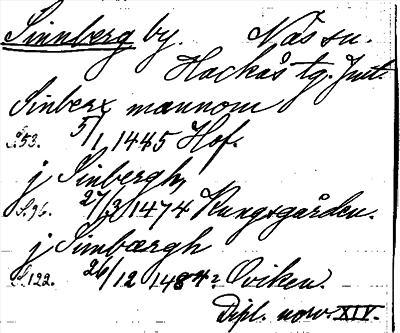 Sinnberg by. Näs sn.
Hackås tg. Jmt.
Sinberx mannom
S.53. 5/1 1445 Hof.
j Sinbergh,
S.96. 27/3 1474 Kungsgården.
j Simbærgh
S.122. 26/12 1484 Oviken.
Dipl. norv. XIV.